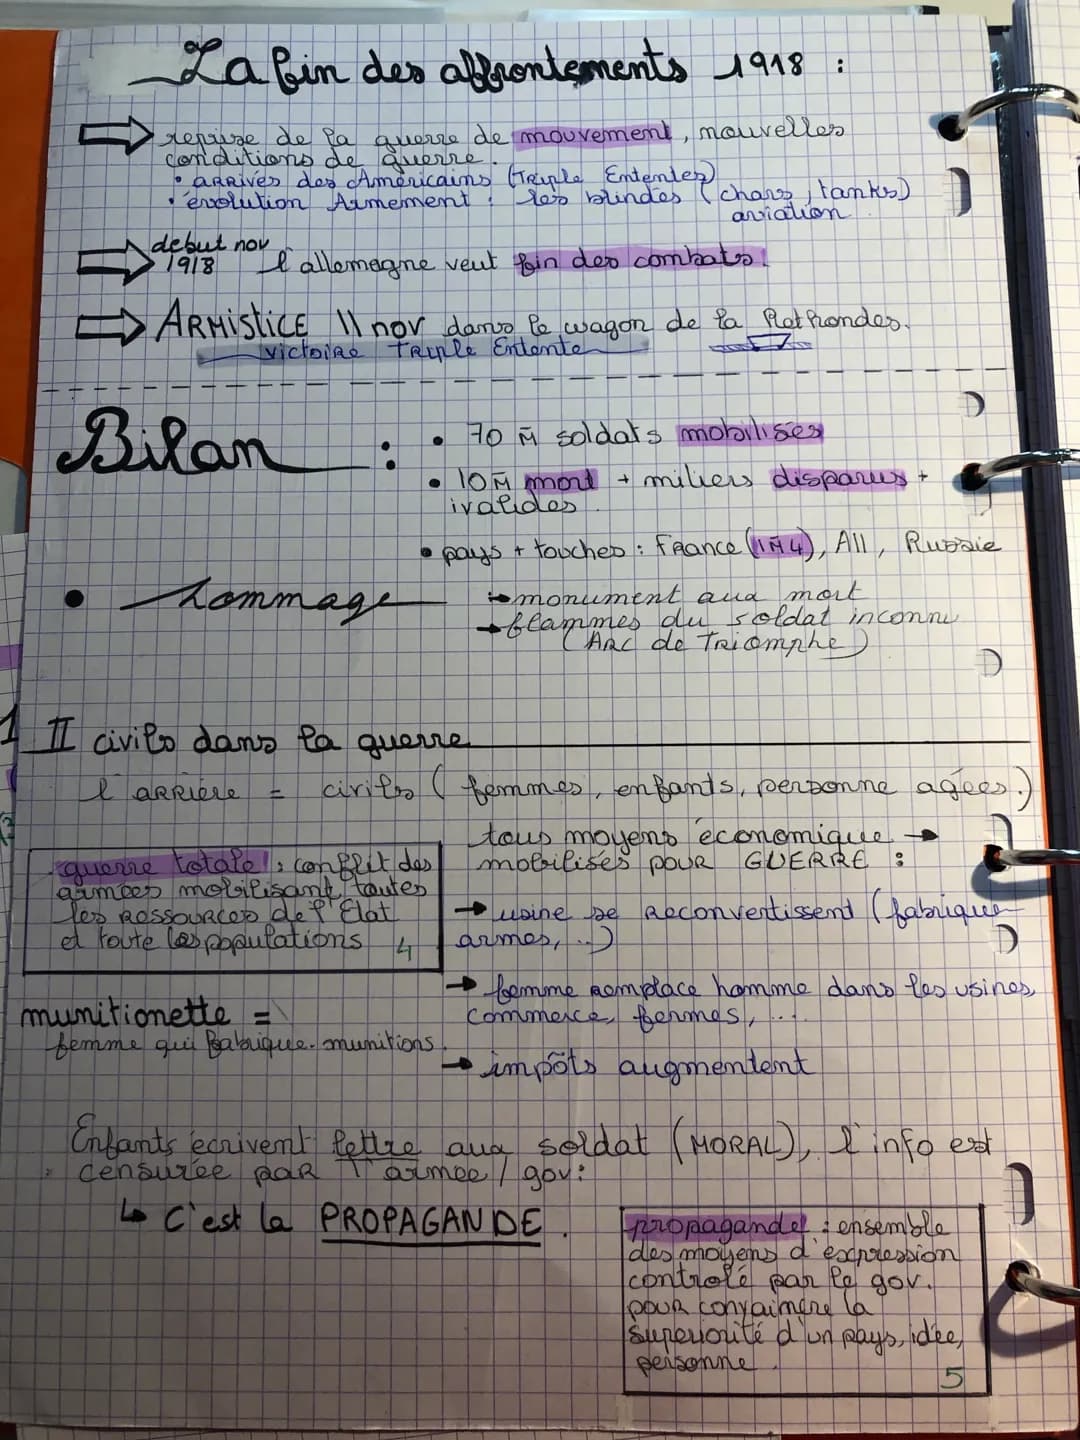 La fin des affrontements 1918 :
reprise de la guerre de mouvement, nouvelles
conditions de guerre.
• arrivés des Américains (Triple Ententez)
• évolution Armement : les blindés (chars, tanks)
aviation.
debut nov
1918 l'allemagne veut fin des combats.
ARMISTICE 11 nov dans le wagon de la Rothondes.
victoire Triple Entente
Bilan :
• 70 M soldats mobilisés
• 10M mort + miliers disparus +
ivalides.
• pays + touches : France (1M4), All, Russie
• hommage
→ monument aux mort
→ flammes du soldat inconnu
(Arc de Triomphe)
II civils dans la guerre
l'arrière = civils (femmes, enfants, personne agées.)
tous moyens économique →
mobilisés pour GUERRE :
guerre totale : conflit des
armées mobilisant toutes
les ressources de l'Etat
et toute les populations 4
→ usine se reconvertissent (fabrique
armes, ..)
→ femme remplace homme dans les usines,
commerce, fermes, ...
munitionette =
femme qui fabrique munitions.
→ impôts augmentent
Enfants ecrivent lettre aux soldat (MORAL), l'info est
censurée par l'armee / gov:
↳ C'est la PROPAGANDE.
propagande : ensemble
des moyens d'expression
controlé par le gov.
pour convaincre la
superiorité d'un pays, idée,
personne.
5